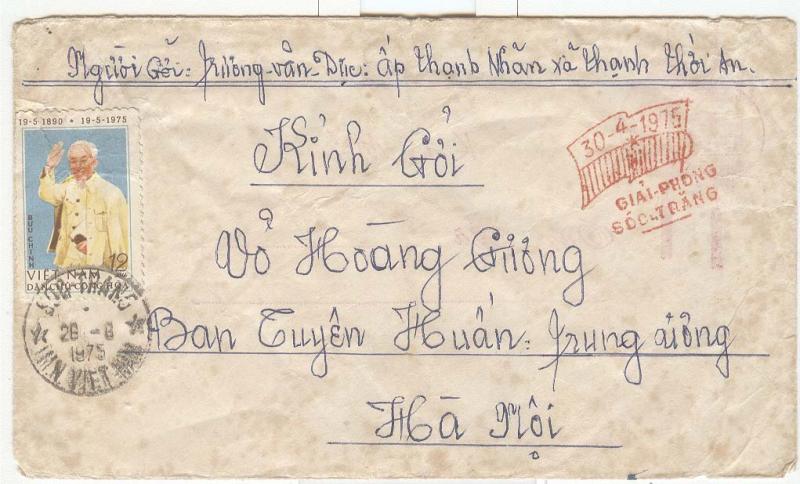 Người Gởi: Trương-văn-Dục: ấp thạnh Nhãn xã thạnh thới An.
19-5-1890 • 19-5-1975
BƯU CHÍNH
12
VIỆT NAM
DÂN CHỦ CỘNG HÒA
SÓC TRĂNG
28 - 8
1975
VIỆT NAM
30-4-1975
GIẢI-PHÓNG
SÓC-TRĂNG
Kính Gởi
Võ Hoàng Gương
Ban Tuyên Huấn: Trung ương
Hà Nội